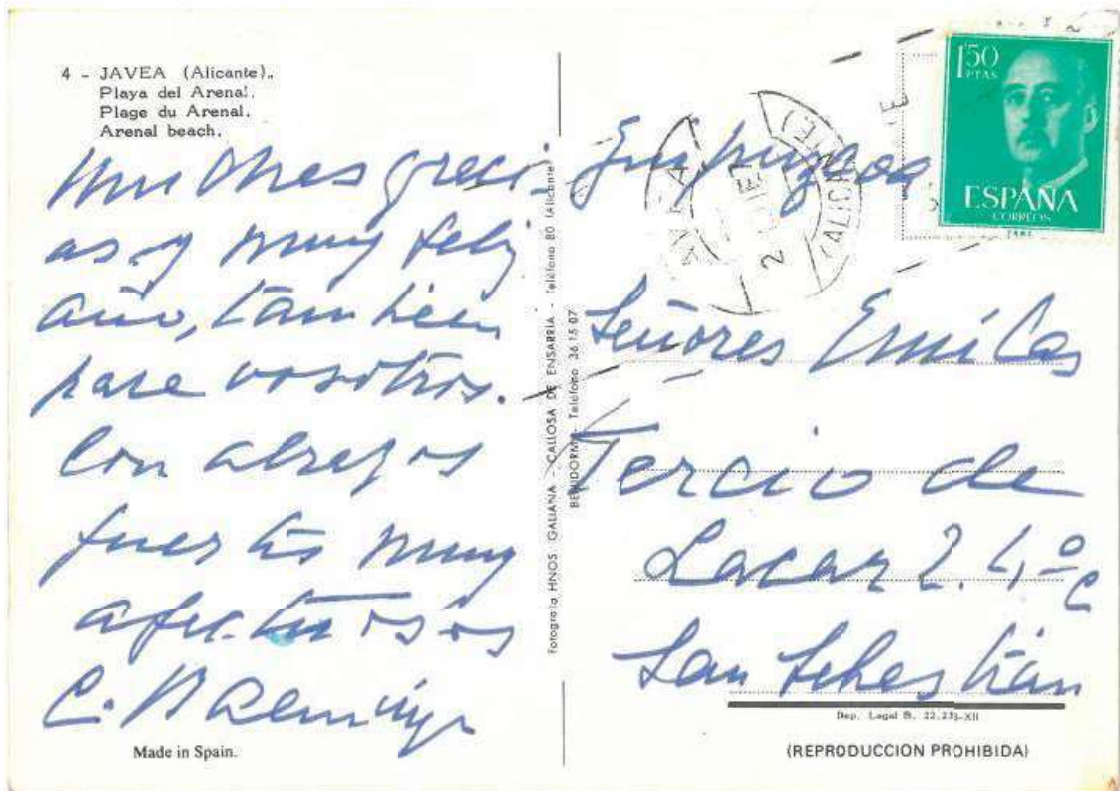 4 - JAVEA (Alicante).
Playa del Arenal.
Plage du Arenal.
Arenal beach.
Muchas graci-
as y muy feliz
año, tambien
para vosotros.
Con abrazos
fuertes muy
afectuosos
C.
Made in Spain.
Fotografía HNOS. GALIANA - CALLOSA DE ENSARRIA - Teléfono 80 (Alicante)
BENIDORM - Teléfono 36 15 07
1'50
PTAS
ESPAÑA
CORREOS
JAVEA
(ALICANTE)
2
Señores
Tercio de
Lacar 2. 4º C
San Sebastián
Dep. Legal B. 22.233-XII
(REPRODUCCION PROHIBIDA)